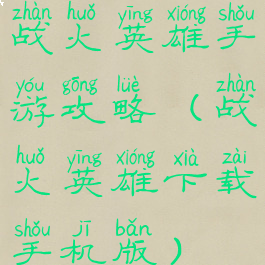 zhàn huǒ yīng xióng shǒu
战火英雄手
yóu gōng lüè zhàn
游攻略（战
huǒ yīng xióng xià zài
火英雄下载
shǒu jī bǎn
手机版）